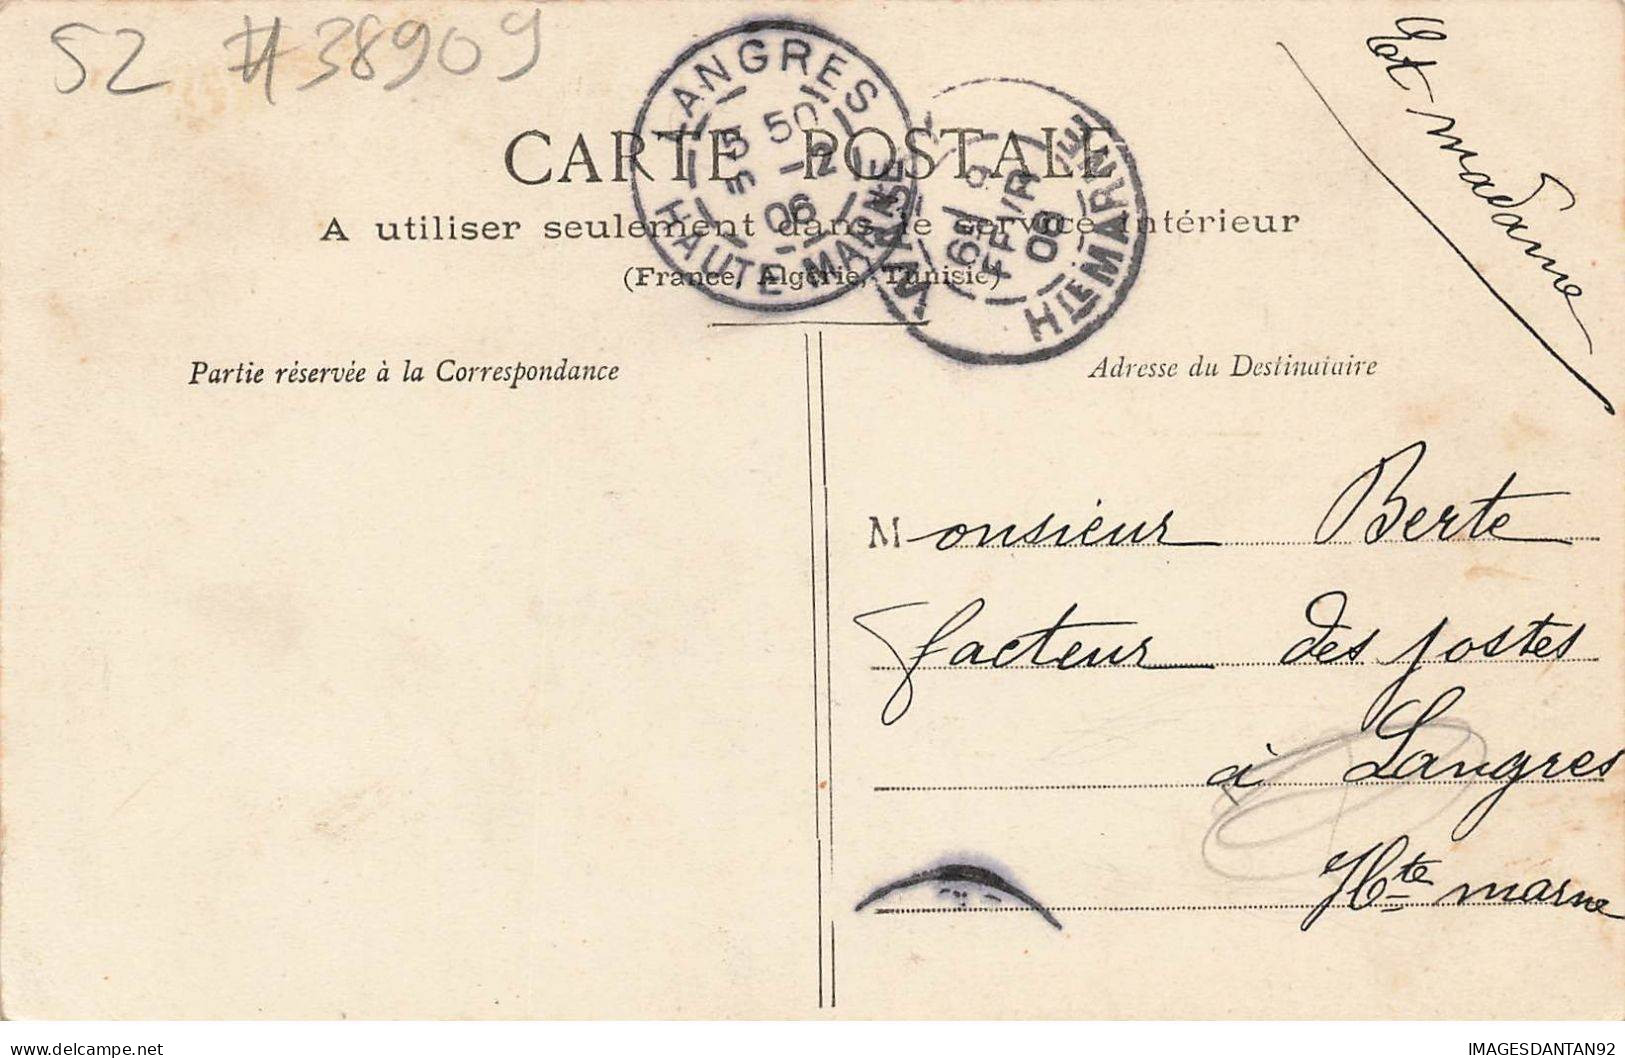 52 #38909
LANGRES
5 50
3 -2
06
HAUTE-MARNE
9
FEVR
06
HTE MARNE
Et madame
CARTE POSTALE
A utiliser seulement dans le service intérieur
(France, Algérie, Tunisie)
Partie réservée à la Correspondance
Adresse du Destinataire
Monsieur Berte
facteur des postes
à Langres
Hte marne
delcampe.net
IMAGESDANTAN92